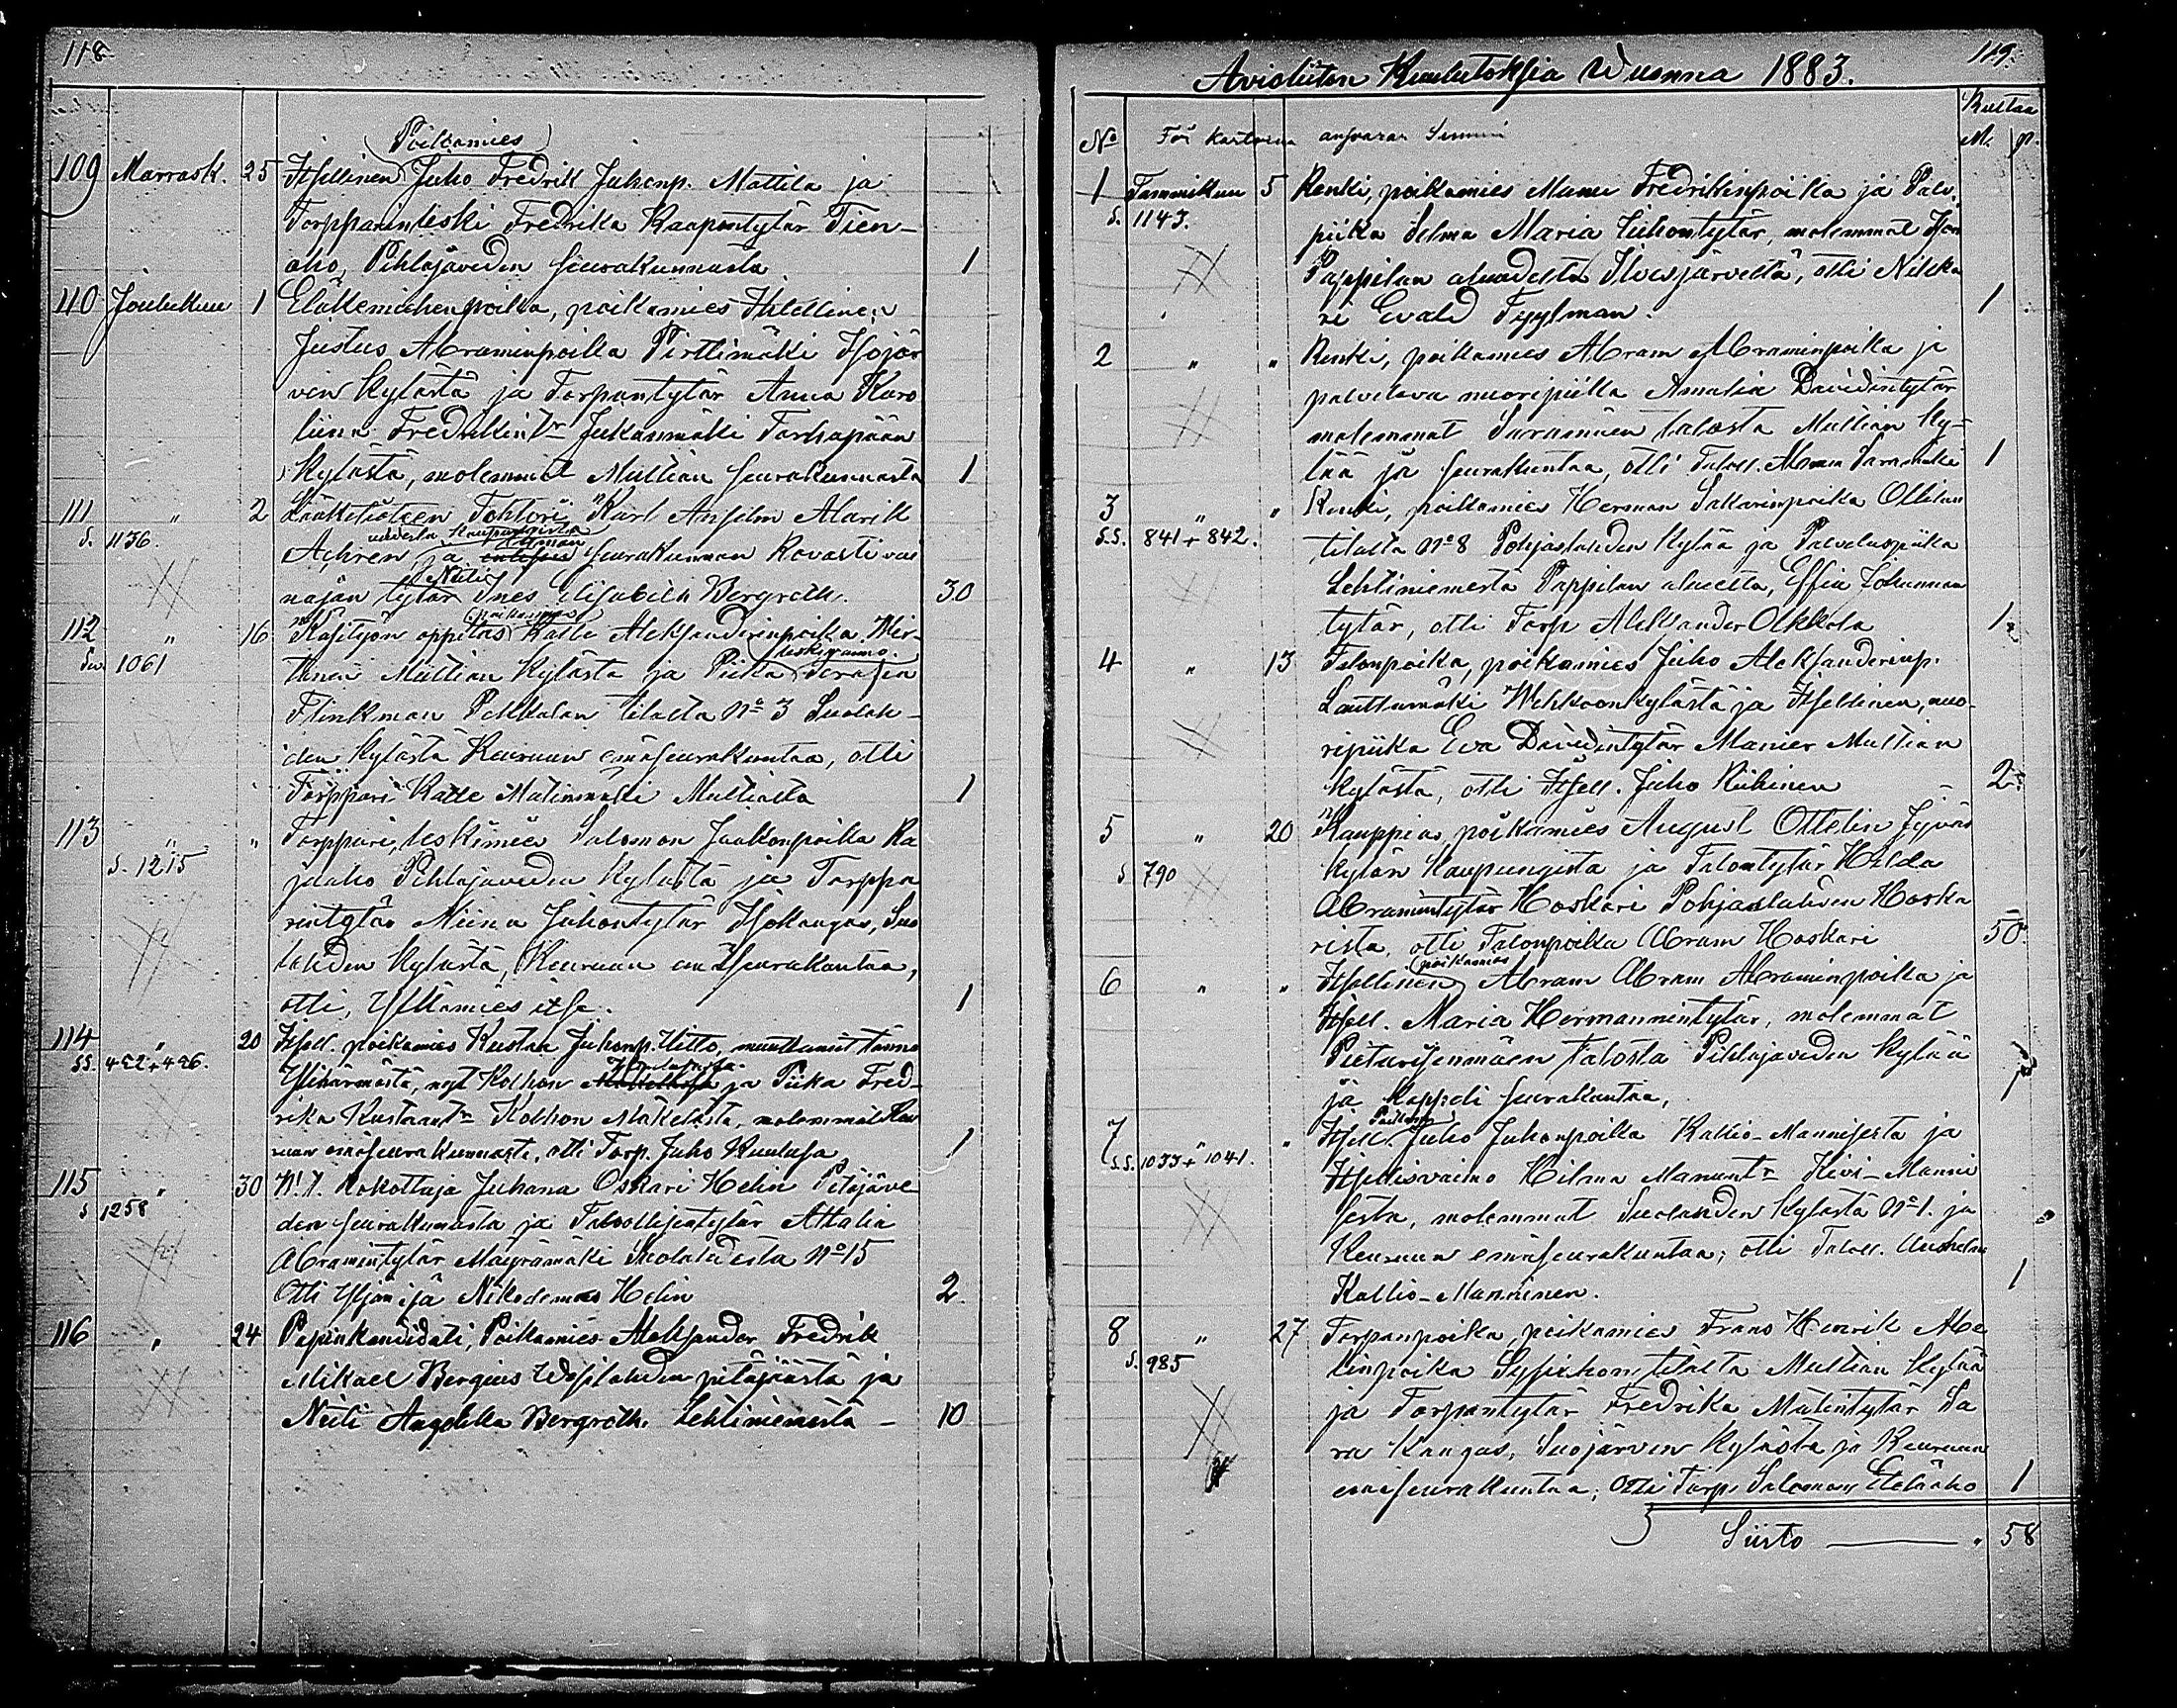 118
Poikamies
109 Marrask. 25 Itsellinen Juho Fredrik Juhonp. Mattila ja
Torpparinleski Fredrika Kaapontytär Tien-
aho, Pihlajaveden seurakunnasta 1
110 Joulukuu 1 Eläkemiehenpoika, poikamies
Justus Abraminpoika Pirttimäki Isojär
ven kylästä ja Torpantytär Anna Karo
liina Fredrikint:r Jukanmäki Tarhapään
kylästä, molemmat Multian seurakunnasta 1
111 " 2 Lääketieteen Tohtori Karl Anselm Alarik
S. 1136.
Achren ja seurakunnan Rovasti vai
Neiti
najan tytär Ines Elisabeth Bergroth. 30
112 " 16 Käsityön oppilas Kalle Aleksanderinpoika Wir-
1061 leskivaimo.
tanen Multian kylästä ja Piika Serafia
Flinkman Pekkalan tilalta No 3 Suolah-
den kylästä Keuruun emäseurakuntaa, otti
Torppari Kalle Mutinmäki Multialta 1
113 " " Torppari, leskimies Salomon Jaakonpoika Ra
S. 1215
jaaho Pihlajaveden kylästä ja Torppa
rintytär Miina Juhontytär Isokangas, Suo
lahden kylästä, Keuruun emäseurakuntaa,
otti, Ylkämies itse. 1
114 " 20 Itsell. poikamies Kustaa Juhonp. Uitto, muuttanut tänne
SS. 492+496.
Ylihärmästä, nyt Kolhon ja Piika Fred-
rika Kustaant:r Kolhon Mäkelästä, molemmat Keu
ruun emäseurakunnasta, otti Torp. Juho Ruuhija 1
115 " 30 W.t. Lukottaja Juhana Oskari Helin Petäjäve
S 1258
den seurakunnasta ja Talollisentytär Attalia
Abramintytär Mäyrämäki Suolahdesta No 15
Otti Yljän isä Nikodemus Helin 2
116 " 24 Papinkandidati, Poikamies Aleksander Fredrik
Mikael Bergius Wesilahden pitäjäästä ja
Neiti Angelika Bergroth Lehtiniemestä - 10
119.
Avioliiton Kuulutoksia Wuonna 1883.
Rustaa
No M. p.
1 Tammikuu 5 Renki, poikamies Manu Fredrikinpoika ja Palv.
S. 1143.
piika Selma Maria Liihontytär, molemmat
Pappilan alueelta Ilvesjärveltä, otti Nikka
ri Evald Fyylman. 1
2 " " Renki, poikamies Abram Abraminpoika ja
palveleva nuoripiika Amalia Davidintytär
molemmat Saramäen talosta Multian ky-
lää ja seurakuntaa, otti Taloll. Abram Saramäki 1
3 " " Renki, poikamies Herman Sakarinpoika Ollilan
S.S. 841+842.
tilalta No 8 Pohjaslahden kylää ja Palveluspiika
Lehtiniemestä Pappilan alueelta, Effia Johannan
tytär, otti Torp Aleksander Olkkola 1
4 " 13 Talonpoika, poikamies Juho Aleksanderinp.
Lauttamäki Wehkoonkylästä ja Itsellinen, nuo-
ripiika Eva Davidintytär Manier Multian
kylästä, otti Itsell. Juho Kiibinen 2
5 " 20 Kauppias, poikamies August Ottelin Jyväs
S 790
kylän kaupungista ja Talontytär Hilda
Abramintytär Hoskari Pohjaslahden Hoska
rista, otti Talonpoika Abram Hoskari 50
poikamies
6 " " Itsellinen Abram Abram Abraminpoika ja
Itsell. Maria Hermannintytär, molemmat
Pietarisenmäen talosta Pihlajaveden kylää
ja kappeli seurakuntaa,
7 " " Itsell. Juho Juhonpoika Kallio-Mannisesta ja
S.S. 1033+1041.
Itsellisvaimo Hilma Manunt:r Kivi-Manni
sesta, molemmat Suolahden kylästä No 1. ja
Keuruun emäseurakuntaa; otti Taloll.
Kallio-Manninen. 1
8 " 27 Torpanpoika, poikamies Frans Henrik Abe
S. 985
linpoika tilalta Multian kylää
ja Torpantytär Fredrika Matintytär Sa
ra kangas, Suojärven kylästä ja Keuruun
emäseurakuntaa; Otti Torp. Salomon Eteläaho 1
Siirto — " 58